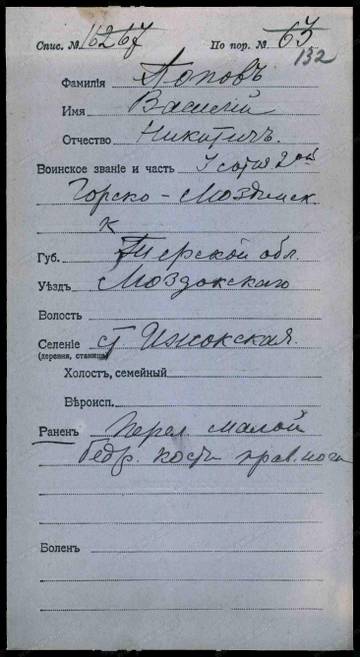 Спис. № 16267 По пор. № 63
132
Фамилія Поповъ
Имя Василий
Отчество Никитичъ.
Воинское званіе и часть 1 сотня 2ой
Горско-Моздокск.
к
Губ. Терской обл.
Уѣздъ Моздокскаго
Волость
Селеніе ст
(деревня, станица)
Холостъ, семейный
Вѣроисп.
Раненъ Перел малой
бедр. кости прав. ноги
Боленъ